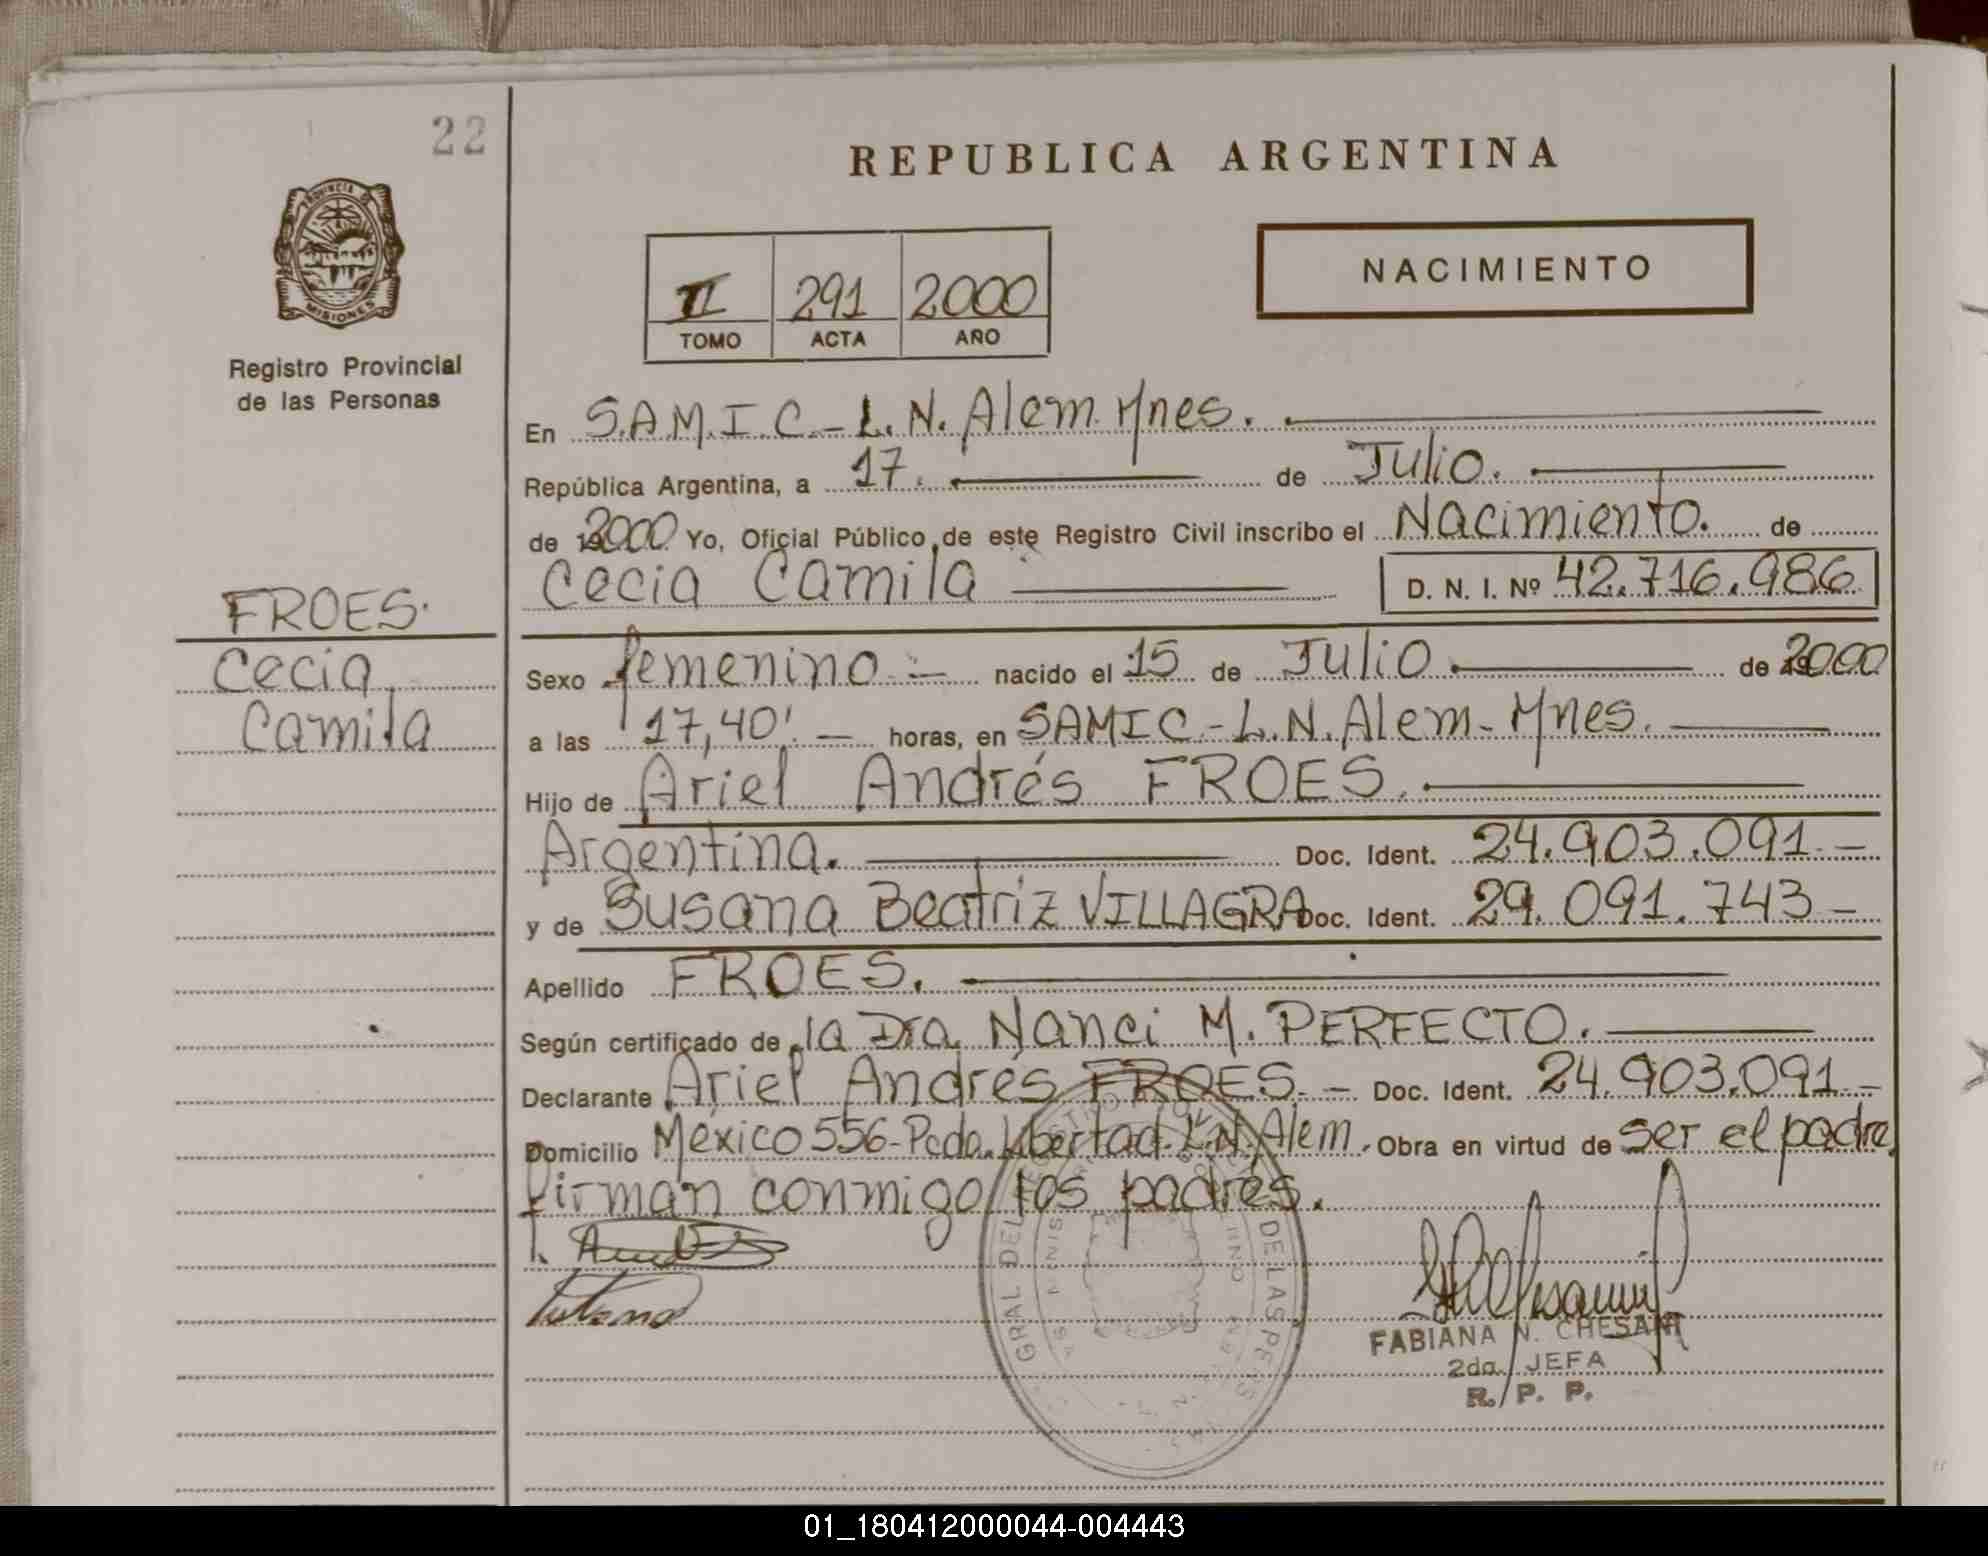 22
REPUBLICA ARGENTINA
PROVINCIA DE
MISIONES
Registro Provincial
de las Personas
II 291 2000
TOMO ACTA AÑO
NACIMIENTO
En S.A.M.I.C.-L.N.Alem.Mnes.
República Argentina, a 17. de Julio.
de 2000 Yo, Oficial Público de este Registro Civil inscribo el Nacimiento. de
Cecia Camila D. N. I. Nº 42.716.986
FROES.
Cecia
Camila
Sexo femenino.- nacido el 15 de Julio. de 2000
a las 17,40'.- horas, en SAMIC-L.N.Alem-Mnes.
Hijo de Ariel Andrés FROES.
Argentina. Doc. Ident. 24.903.091.-
y de Susana Beatriz VILLAGRA Doc. Ident. 29.091.743-
Apellido FROES.
Según certificado de la Dra Nanci M. PERFECTO.
Declarante Ariel Andrés FROES.- Doc. Ident. 24.903.091.-
Domicilio México 556-Pcda.Libertad-L.N.Alem. Obra en virtud de ser el padre
firman conmigo los padres.
FABIANA N. CHESANI
2da. JEFA
R. P. P.
GRAL DEL
DE LAS PERS
01_180412000044-004443